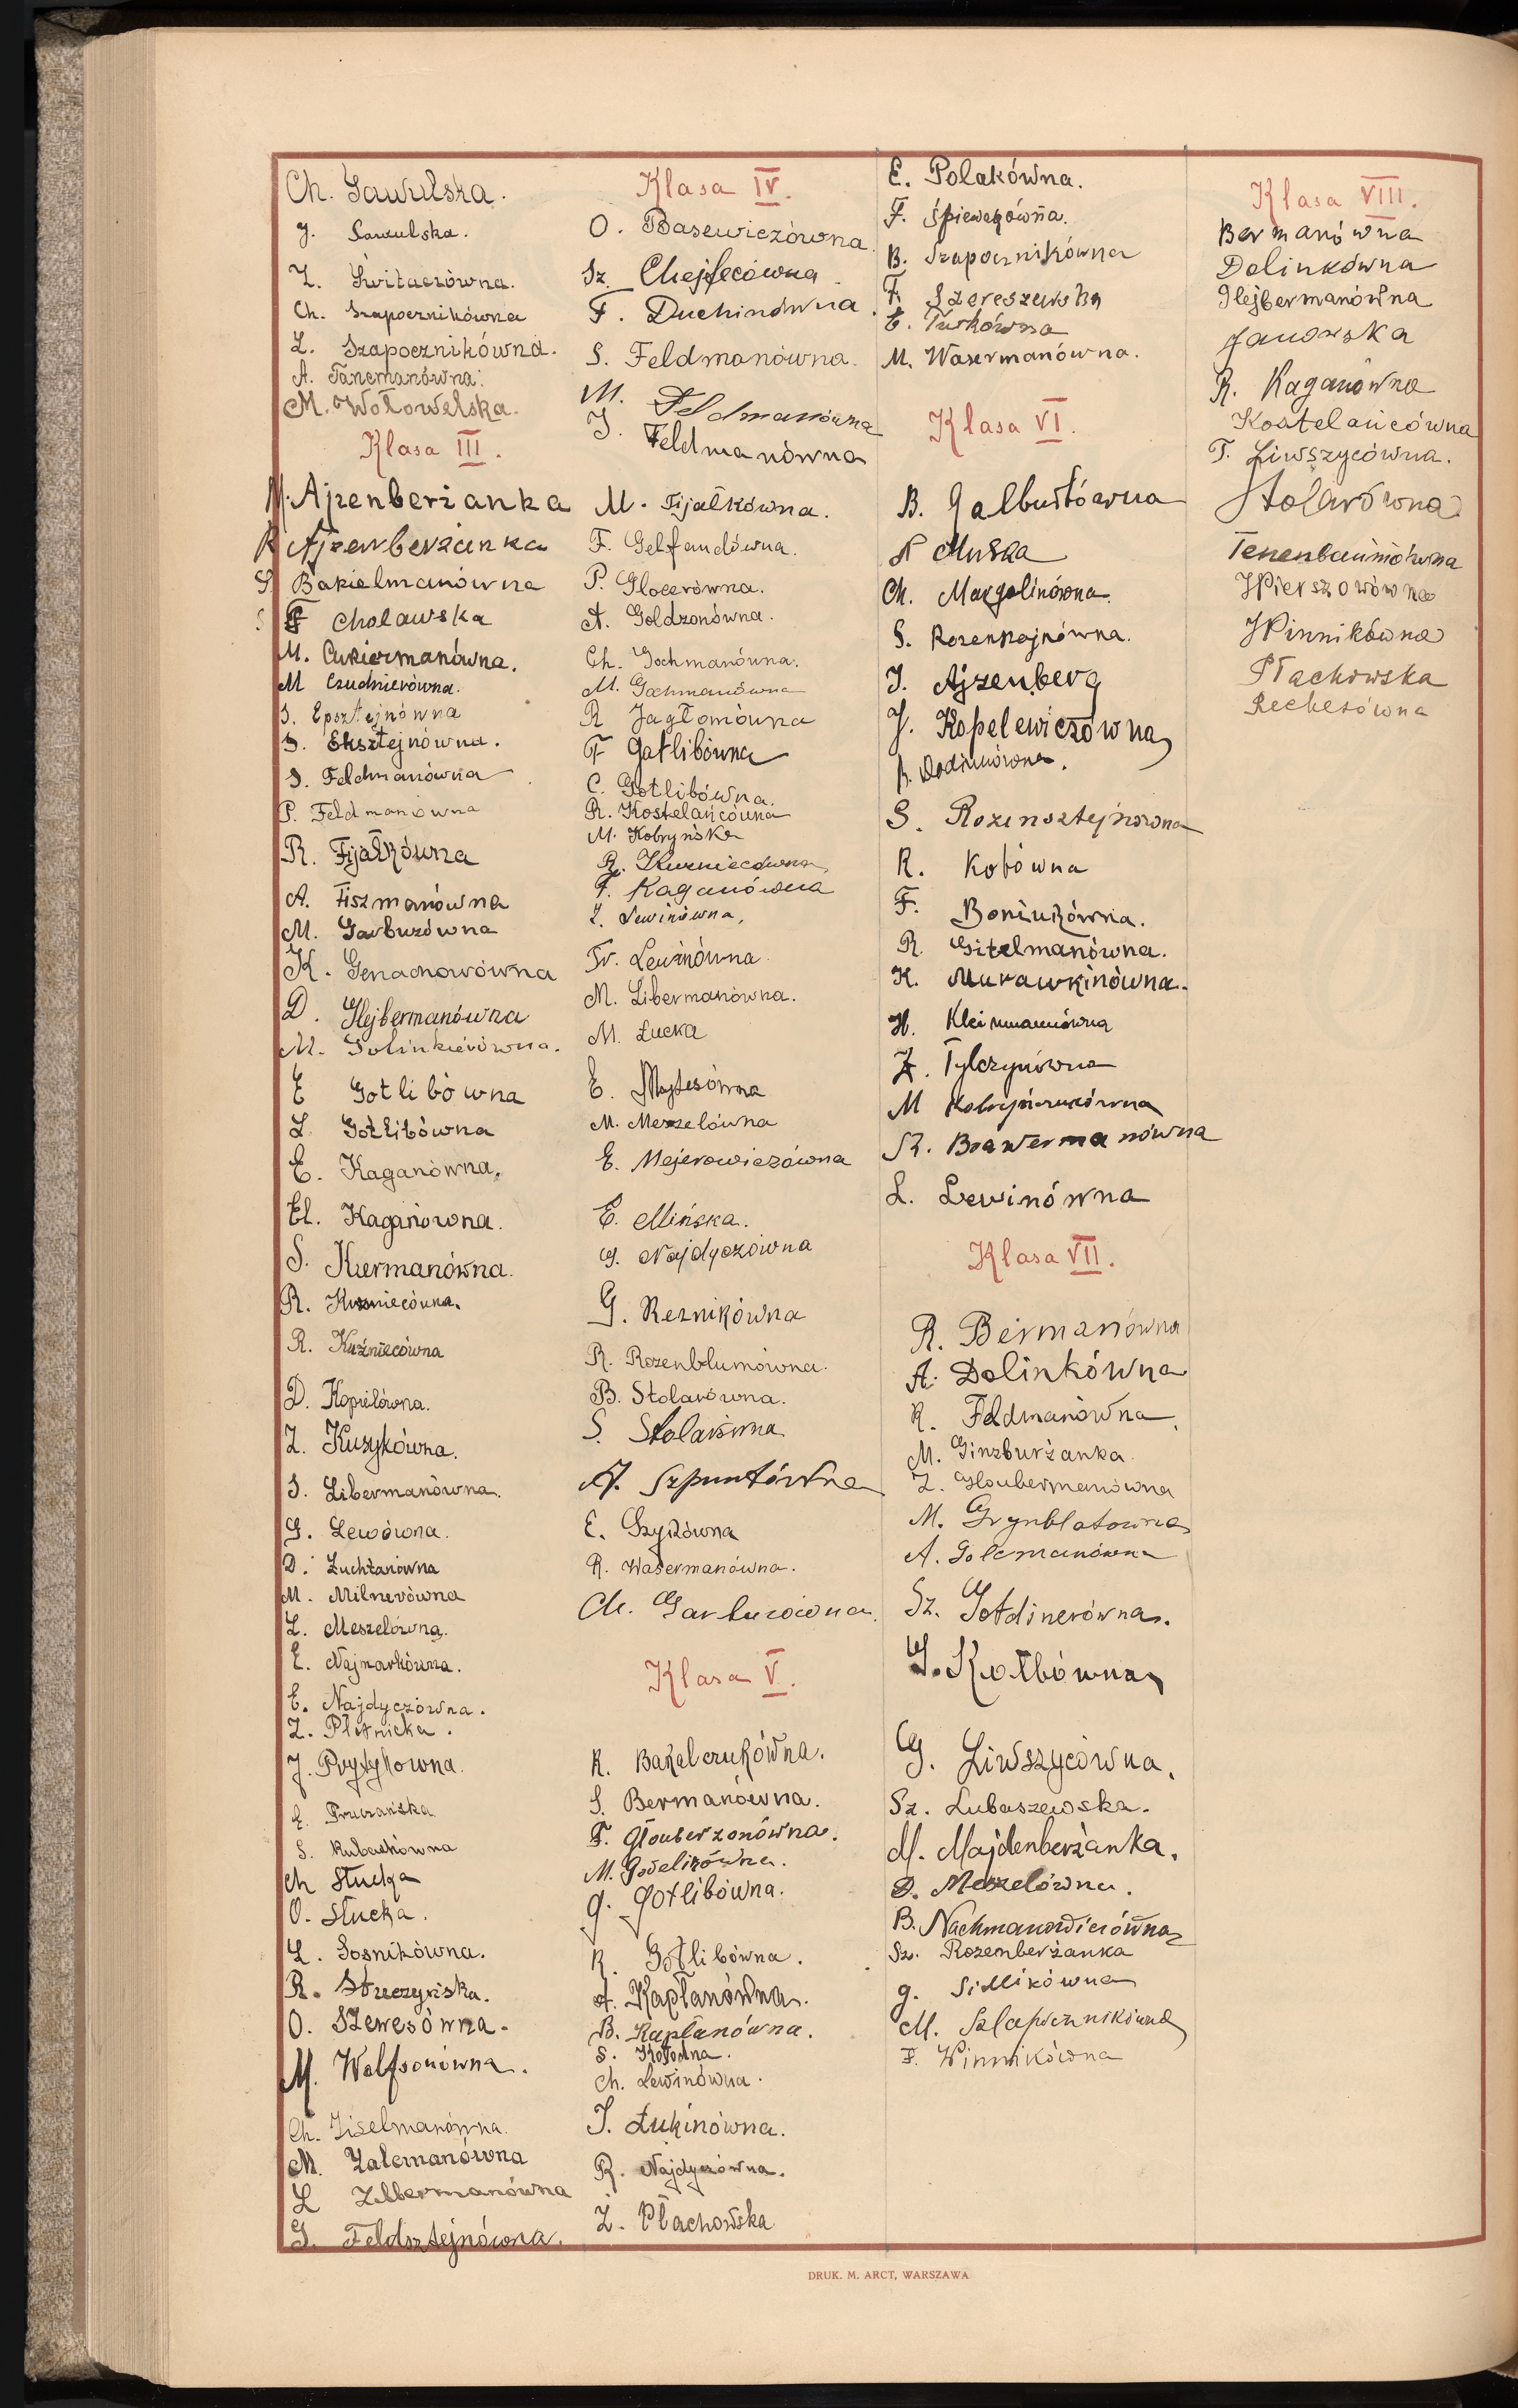 Ch. Sawulska.
J. Sawulska.
Z. Świtaczówna.
Ch. Szapocznikówna
L. Szapocznikówna.
A. Tanemanówna.
M. Wołowelska.
Klasa III.
M. Ajzenberżanka
R Ajzenberżanka
S. Bakielmanówna
F Cholawska
M. Cukiermanówna.
M Czudnierówna.
S. Epsztejnówna
S. Eksztejnówna.
S. Feldmanówna
P. Feldmanówna
R. Fijałkówna
A. Fiszmanówna
M. Garbuzówna
K. Genachowówna
D. Glejbermanówna
M. Golinkierówna.
E Gotlibówna
L. Gotlibówna
E. Kaganówna.
El. Kaganówna.
S. Kiermanówna.
R. Kuzniecówna.
R. Kuźniecówna
D. Kopielówna.
Z. Kuzykówna.
S. Libermanówna.
G. Lewówna.
D. Luchtanówna
M. Milnerówna
L. Meszelówna.
E. Najmarkówna.
E. Najdyczówna.
Z. Pletnicka.
J. Prytykówna.
E. Prużańska
S. Rubachówna
Ch Słucka
O. Słucka.
L. Sosnikówna.
R. Strzeżyńska.
O. Szewesówna.
M. Wolfsonówna.
Ch. Ziselmanówna.
M. Zalcmanówna
L Zilbermanówna
G. Feldsztejnówna.
Klasa IV.
O. Basewiczówna
Sz. Chejfecówna
F. Duchinówna
S. Feldmanówna.
M. Feldmanówna
J. Feldmanówna
M. Fijałkówna.
F. Gelfandówna.
P. Glocerówna.
A. Goldzonówna.
Ch. Gochmanówna.
M. Gochmanówna
R Jagłomówna
F Gotlibówna
C. Gotlibówna.
R. Kostelańcówna
M. Kobryńska
R. Kuzniecówna
F. Kaganówna
L. Lewinówna,
Fr. Lewinówna
M. Libermanówna.
M. Łucka
E. Majtesówna
M. Meszelówna
E. Mejerowiczówna
E. Mińska.
G. Najdyczówna
G. Reznikówna
R. Rozenblumówna.
B. Stolarówna.
S. Stolarówna
A. Szpuntówna
E. Szykówna
R. Wasermanówna.
Ch. Garbuzówna.
Klasa V.
R. Bakalczukówna.
S. Bermanówna.
F. Glouberzonówna.
M. Goselikówna.
G. Gotlibówna.
R. Gotlibówna.
A. Kapłanówna.
B. Kapłanówna.
S. Kotówna.
Ch. Lewinówna.
J. Łukinówna.
R. Najdyczówna.
Z. Płachowska
E. Polakówna.
F. Śpiewakówna.
B. Szapocznikówna
F. Szereszewska
E. Turkówna
M. Wasermanówna.
Klasa VI.
B. Galburtówna
Muska
Ch. Margolinówna.
S. Rozenkojnówna.
J. Ajzenberg
J. Kopelewiczówna
S. Rozensztejnówna
R. Kotówna
F. Boniukówna.
R. Gitelmanówna.
K. Murawkinówna.
H. Kleinmanówna
Z. Tylczynówna
M Kobryńczukówna
R. Brawermanówna
L. Lewinówna
Klasa VII.
R. Bermanówna
A. Dolinkówna
R. Feldmanówna.
M. Ginzburżanka
Z. Gloubermanówna
M. Grynblatówna
A. Golcmanówna
Sz. Gotdinerówna.
G. Kotłówna
G. Liwszycówna.
Sz. Lubaszewska.
M. Majdenberżanka.
D. Meszelówna.
B. Nachmanowiczówna
Sz. Rozemberżanka
G. Sidlikówna
M. Szlapocznikówna
F. Winnikówna
Klasa VIII.
Bermanówna
Dolinkówna
Glejbermanówna
Janowska
R. Kaganówna
Kostelańcówna
T. Liwszycówna.
Stolarówna
Tenenbaumówna
Wierszowówna
Winnikówna
Płachowska
Rechesówna
DRUK. M. ARCT, WARSZAWA